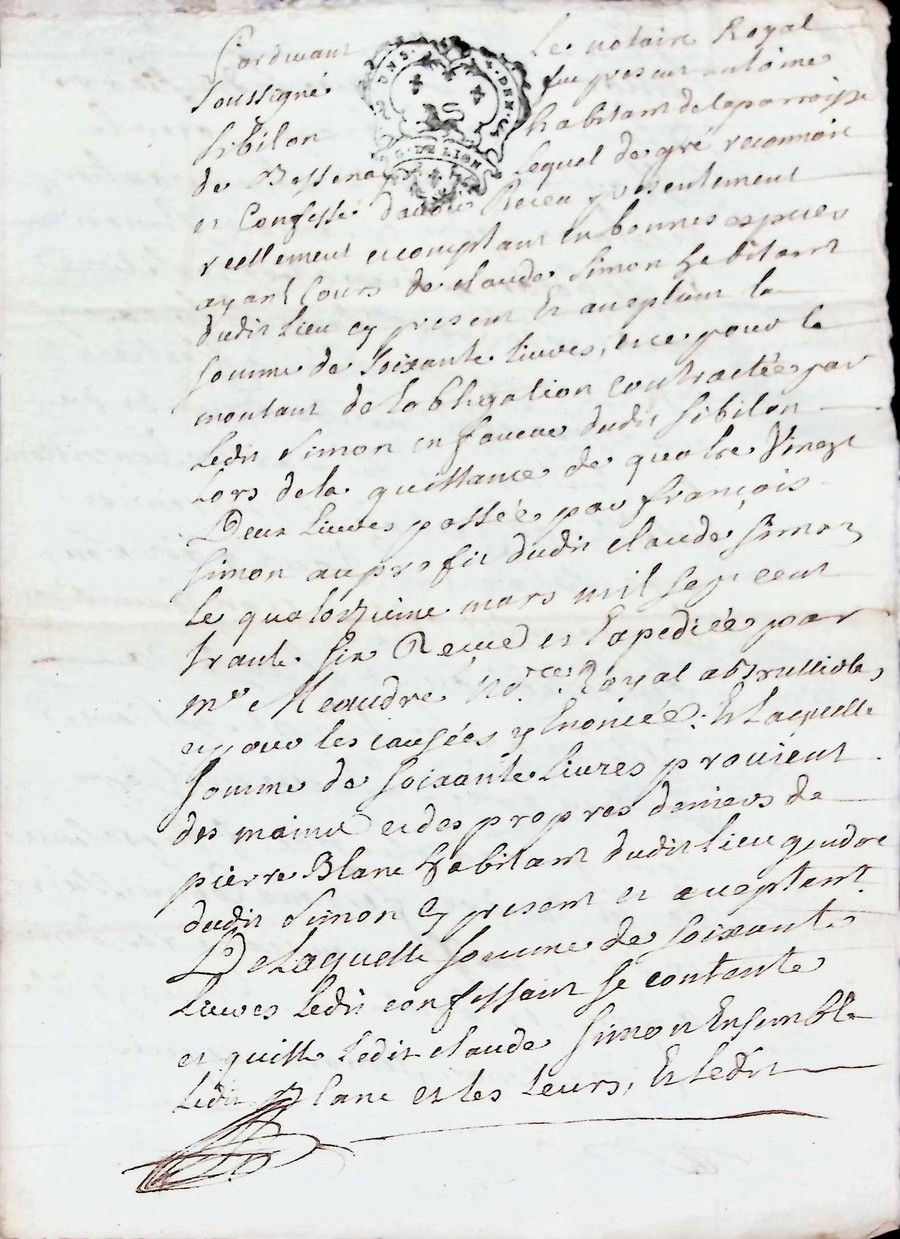 Pardevant Le notaire Royal
soussigné fut present antoine
sibilon habitant de la parroisse
de Bessenay Lequel de gré reconnoit
et Confesse d'avoir Receu presentement
reellement et comptant en bonnes especes
ayant Cours de claude Simon habitant
dudit lieu cy present Et aceptant la
somme de soixante livres, et ce pour le
montant de l'obligation contractée par
Ledit Simon en faveur dudit Sibilon
Lors de la quittance de quatre Vingt
Deux Livres passée par françois
Simon au profit dudit claude Simon
le quatorzieme mars mil sept cent
trante six Receue et Expediée par
me Meaudre Nore Royal a
et pour les causées y Enoncée; Et Laquelle
Somme de soixante Livres provient
des mains et des propres deniers de
pierre Blanc habitant dudit lieu gendre
dudit Simon Cy present et aceptant
De Laquelle somme de soixante
Livres Ledit confessant se contante
et quitte Ledit claude Simon Ensemble
Ledit Blanc et les Leurs, Et Ledit
DEN
G. DE LION